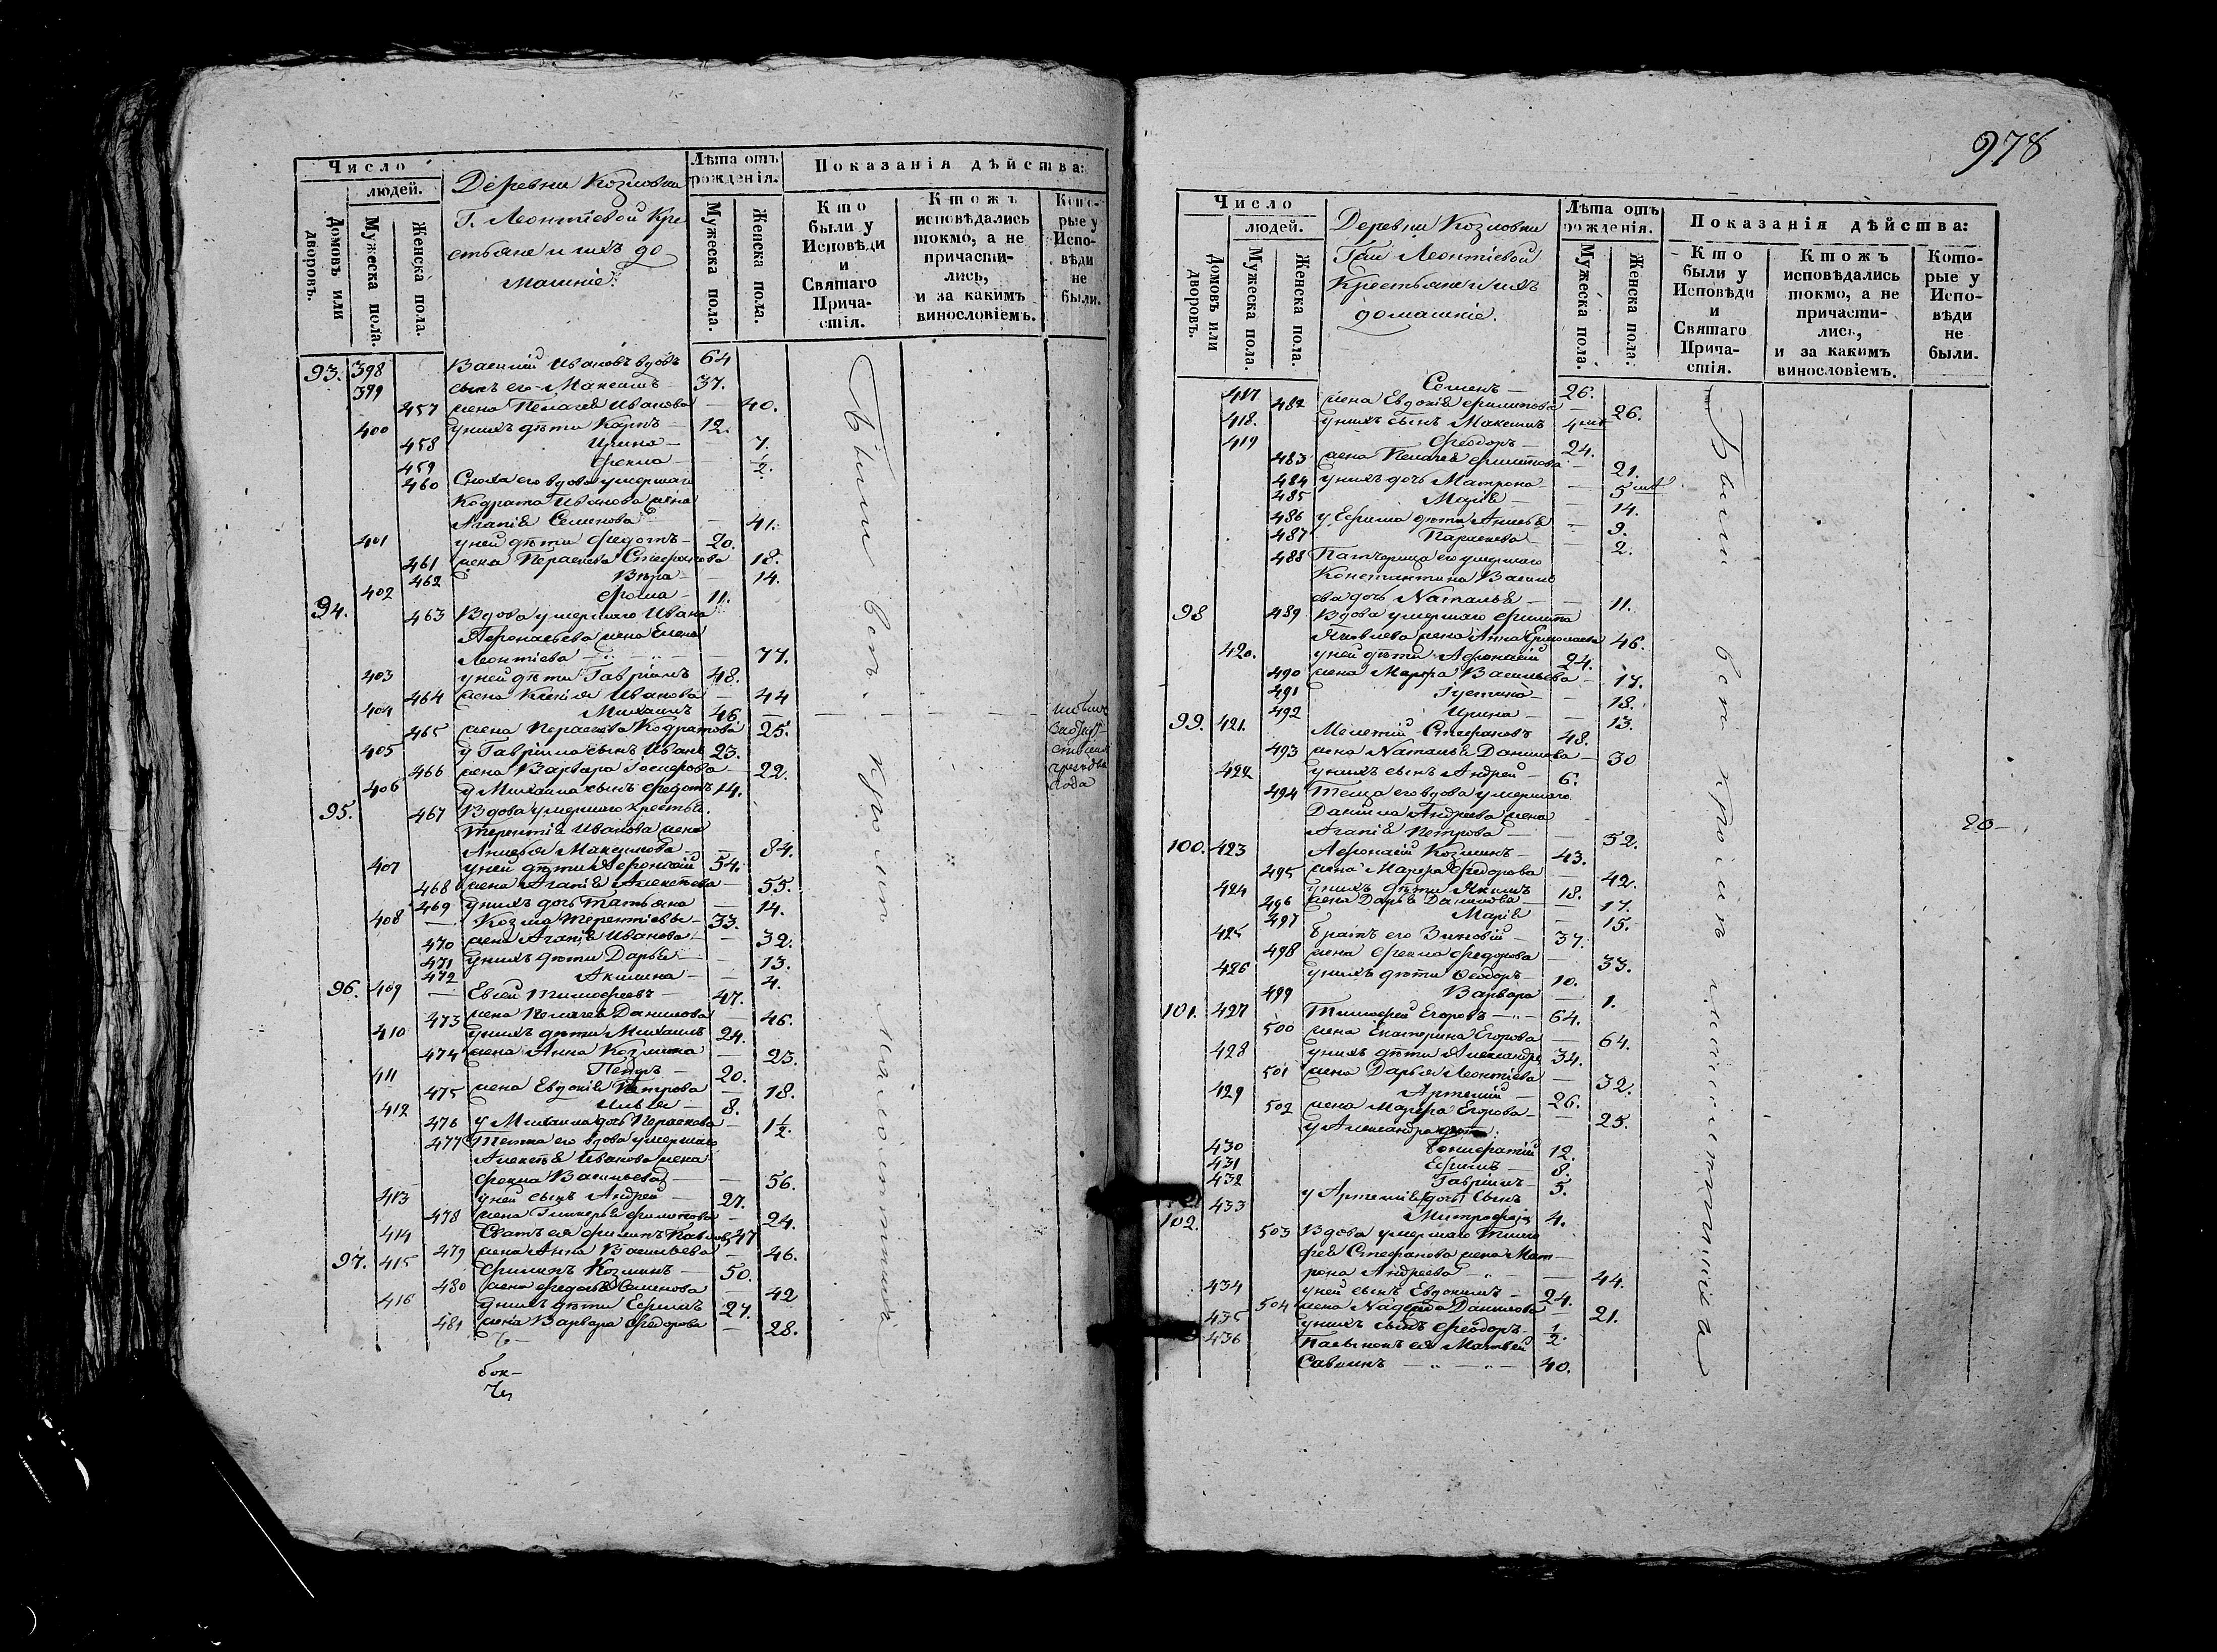 Число
людей.
Домовъ или дворовъ.
Мужеска пола.
Женска пола.
Деревни Козловки
Г. Леонтіевой Кре
стьяне и ихъ до
машніе:
Лѣта отъ рожденія.
Мужеска пола.
Женска пола.
Показанія дѣйства:
Кто были у Исповѣди и Святаго Причастія.
Ктожъ исповѣдались токмо, а не причастились, и за какимъ винословіемъ.
Которые у Исповѣди не были.
93. 398 Василій Ивановъ вдовъ 64
399 сынъ его Максимъ 37.
457 жена Пелагея Иванова 40.
400 у нихъ дѣти Карпъ 12.
458 Ирина 7.
459 Фекла ½.
460 Сноха его вдова умершаго
Кодрата Иванова жена
Агапія Семенова 41.
401 у ней дѣти Федотъ 20.
461 жена Параскева Стефанова 18.
462 Вѣра 14.
402 Фома 11.
94. 463 Вдова умершаго Ивана
Афонасьева жена Елена
Леонтіева 77.
403 у ней дѣти Гавріилъ 48.
464 жена Ксенія Иванова 44
404 Михаилъ 46.
465 жена Параскева Кодратова 25.
405 у Гавріила сынъ Иванъ 23.
466 жена Варвара 22.
406 у Михаила сынъ Федотъ 14.
95. 467 Вдова умершаго крестья.
Терентія Иванова жена
Анисья Максимова 84.
407 у ней дѣти Афонасій 54.
468 жена Агапія Алексѣева 55.
469 у нихъ дочь Татьяна 14.
408 Козма Терентіевъ 33.
470 жена Агапія Иванова 32.
471 у нихъ дѣти Дарья 13.
472 Акилина 4.
96. 409 Евсей Тимофеевъ 47.
473 жена Пелагея Данилова 46.
410 у нихъ дѣти Михаилъ 24.
474 жена Анна Козмина 23.
411 Петръ 20.
475 жена Евдокія Петрова 18.
412 Илья 8.
476 у Михаила дочь Параскева 1½.
477 Тетка его вдова умершаго
Алексѣя Иванова жена
Фекла Васильева 56.
413 у ней сынъ Андрей 27.
478 жена Гликерья Филипова 24.
414 Сватъ ея Филипъ Павловъ 47
479 жена Анна Васильева 46.
97. 415 Филипъ Козминъ 50.
480 жена Федосья Семенова 42
416 у нихъ дѣти Ефимъ 27.
481 жена Варвара Федорова 28.
Были вси
978
Число
людей.
Домовъ или дворовъ.
Мужеска пола.
Женска пола.
Деревни Козловки
Гжи Леонтіевой
Крестьяне и ихъ
домашніе.
Лѣта отъ рожденія.
Мужеска пола.
Женска пола.
Показанія дѣйства:
Кто были у Исповѣди и Святаго Причастія.
Ктожъ исповѣдались токмо, а не причастились, и за какимъ винословіемъ.
Которые у Исповѣди не были.
417 Семенъ 26.
482 жена Евдокія Филипова 26.
418. у нихъ сынъ Максимъ 4
419 Феодоръ 24.
483 жена Пелагея Филипова 21.
484 у нихъ дочь Матрона 5
485 Марія 14.
486 у Ефима дѣти Анисья 9.
487 Параскева 2.
488 Патчерица его умершаго
Константина Василь
ева дочь Наталья 11.
98 489 Вдова умершаго Филипа
Яковлева жена Анна Ермолаева 46.
420. у ней дѣти Афонасій 24.
490 жена Марфа Васильева 17.
491 Густина 18.
492 Ирина 13.
99. 421. Мелетій Стефановъ 48.
493 жена Наталья Данилова 30
422 у нихъ сынъ Андрей 6.
494 Теща его вдова умершаго
Данила Андреева жена
Агапія Петрова 52.
100. 423 Афонасій Козминъ 43.
495 жена Марфа Федорова 42.
424 у нихъ дѣти Якимъ 18.
496 жена Дарья Данилова 17.
497 Марія 15.
425 братъ его Зиновій 37.
498 жена Фекла Федорова 33.
426 у нихъ дѣти Феодоръ 10.
499 Варвара 1.
101. 427 Тимофей Егоровъ 64.
500 жена Екатерина Егорова 64.
428 у нихъ дѣти Александръ 34.
501 жена Дарья Леонтіева 32.
429 Артемій 26.
502 жена Марфа Егорова 25.
у Александра дѣти:
430 Бонифатій 12.
431 Ефимъ 8.
432 Гавріилъ 5.
433 у Артемія сынъ
Митрофанъ 4.
102. 503 Вдова умершаго Тимо
фея Стефанова жена Мат
рона Андреева 44.
434 у ней сынъ Евдокимъ 24.
504 жена Надежда Данилова 21.
435 у нихъ сынъ Феодоръ ½.
436 Пасынокъ ея Матвей
Савинъ 40.
Были вси
20